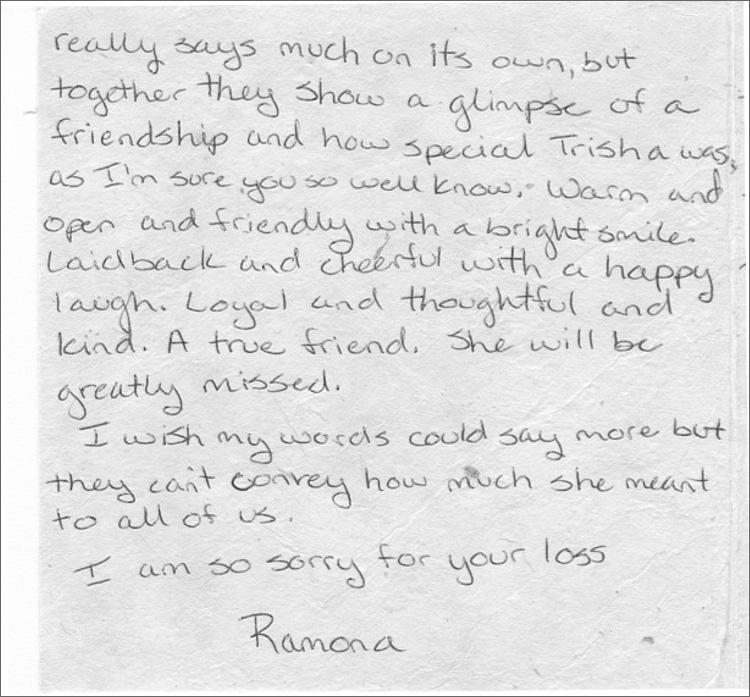 really says much on its own, but
together they show a glimpse of a
friendship and how special Trisha was,
as I'm sure you so well know. Warm and
open and friendly with a bright smile.
Laidback and cheerful with a happy
laugh. Loyal and thoughtful and
kind. A true friend. She will be
greatly missed.
I wish my words could say more but
they can't convey how much she meant
to all of us.
I am so sorry for your loss
Ramona